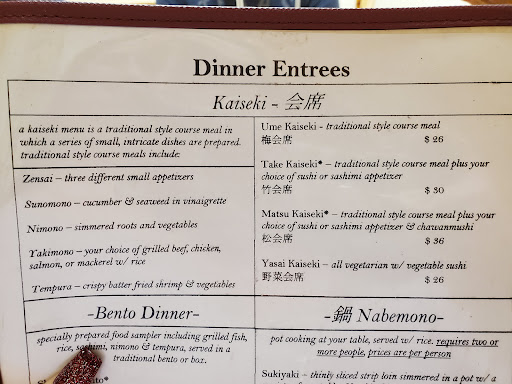 Dinner Entrees
Kaiseki - 会席
a kaiseki menu is a traditional style course meal in
which a series of small, intricate dishes are prepared.
traditional style course meals include:
Zensai – three different small appetizers
Sunomono – cucumber & seaweed in vinaigrette
Nimono – simmered roots and vegetables
Yakimono – your choice of grilled beef, chicken,
salmon, or mackerel w/ rice
Tempura – crispy batter fried shrimp & vegetables
Ume Kaiseki - traditional style course meal
梅会席 $ 26
Take Kaiseki* – traditional style course meal plus your
choice of sushi or sashimi appetizer
竹会席 $ 30
Matsu Kaiseki* – traditional style course meal plus your
choice of sushi or sashimi appetizer & chawanmushi
松会席 $ 36
Yasai Kaiseki – all vegetarian w/ vegetable sushi
野菜会席 $ 26
-Bento Dinner-
specially prepared food sampler including grilled fish,
rice, sashimi, nimono & tempura, served in a
traditional bento or box.
-鍋 Nabemono-
pot cooking at your table, served w/ rice. requires two or
more people, prices are per person
Sukiyaki – thinly sliced strip loin simmered in a pot w/ a